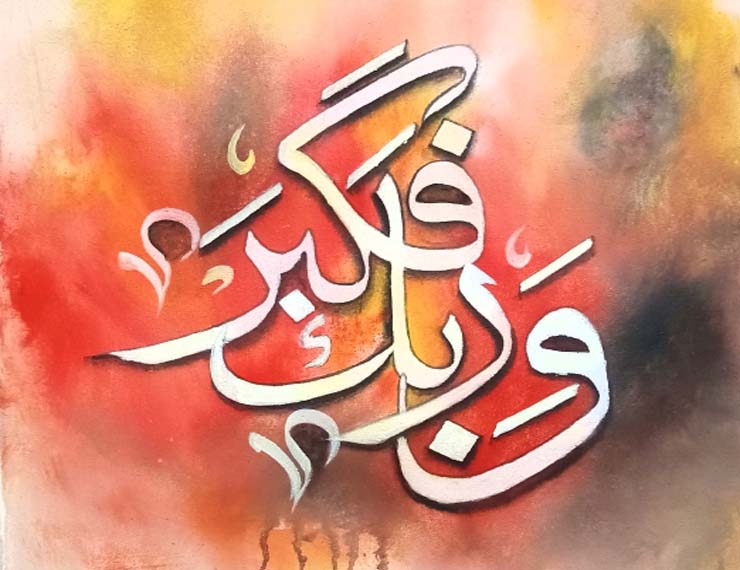 وربك فكبر